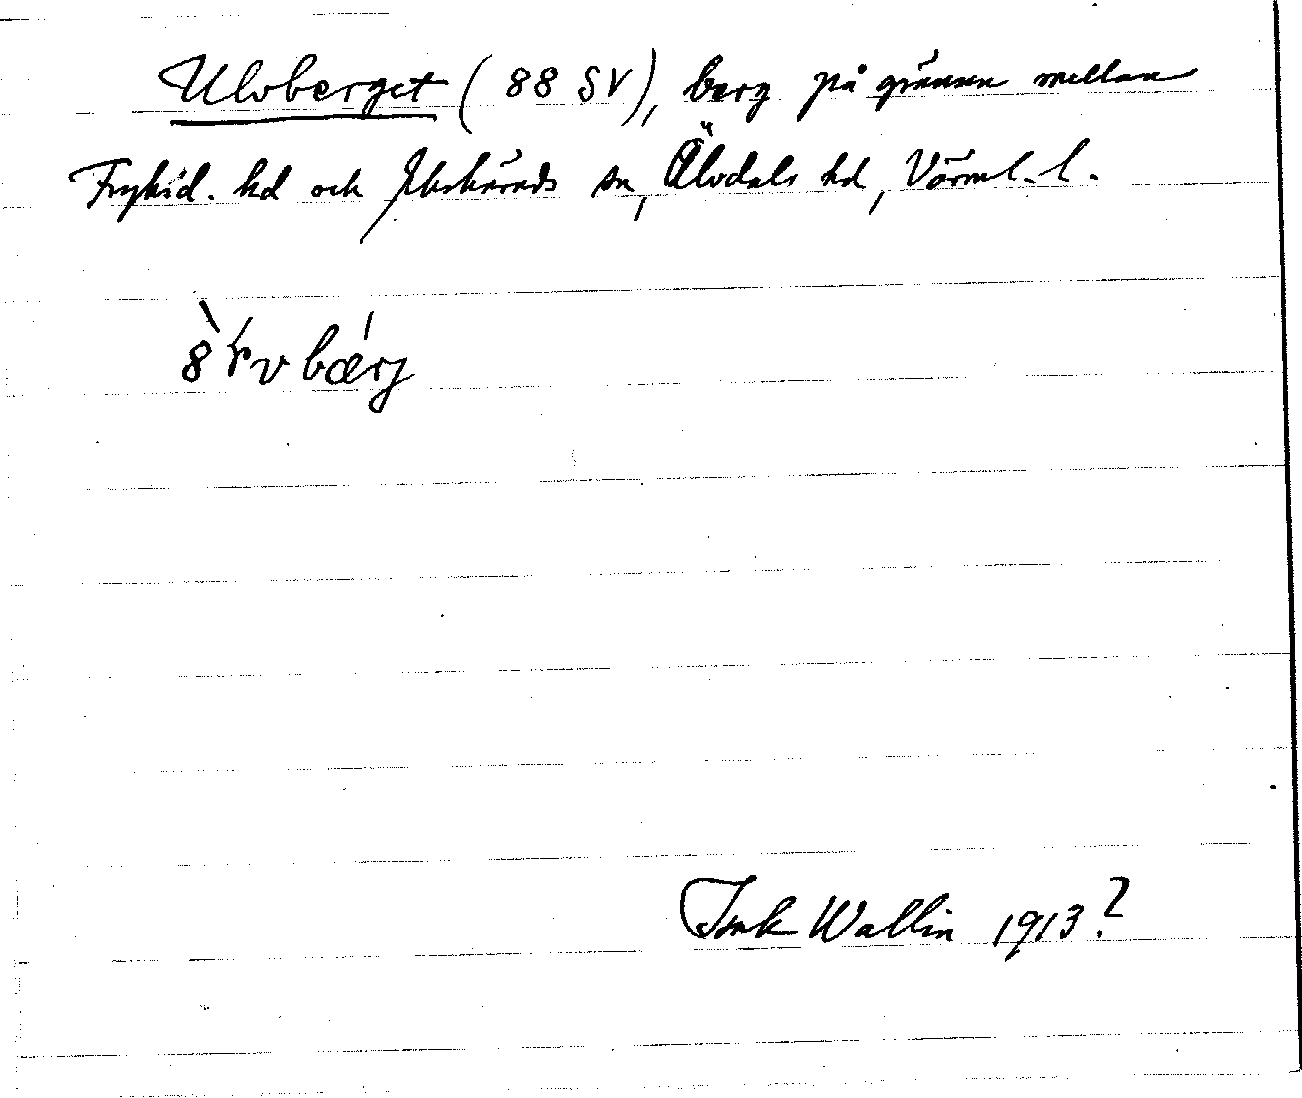 Ulvberget (88 SV), berg på gränsen mellan
Fryksd. hd och Ekshärads sn, Älvdals hd, Värml. l.
8̀ɽv bǽrj
Isak Wallin 1913?